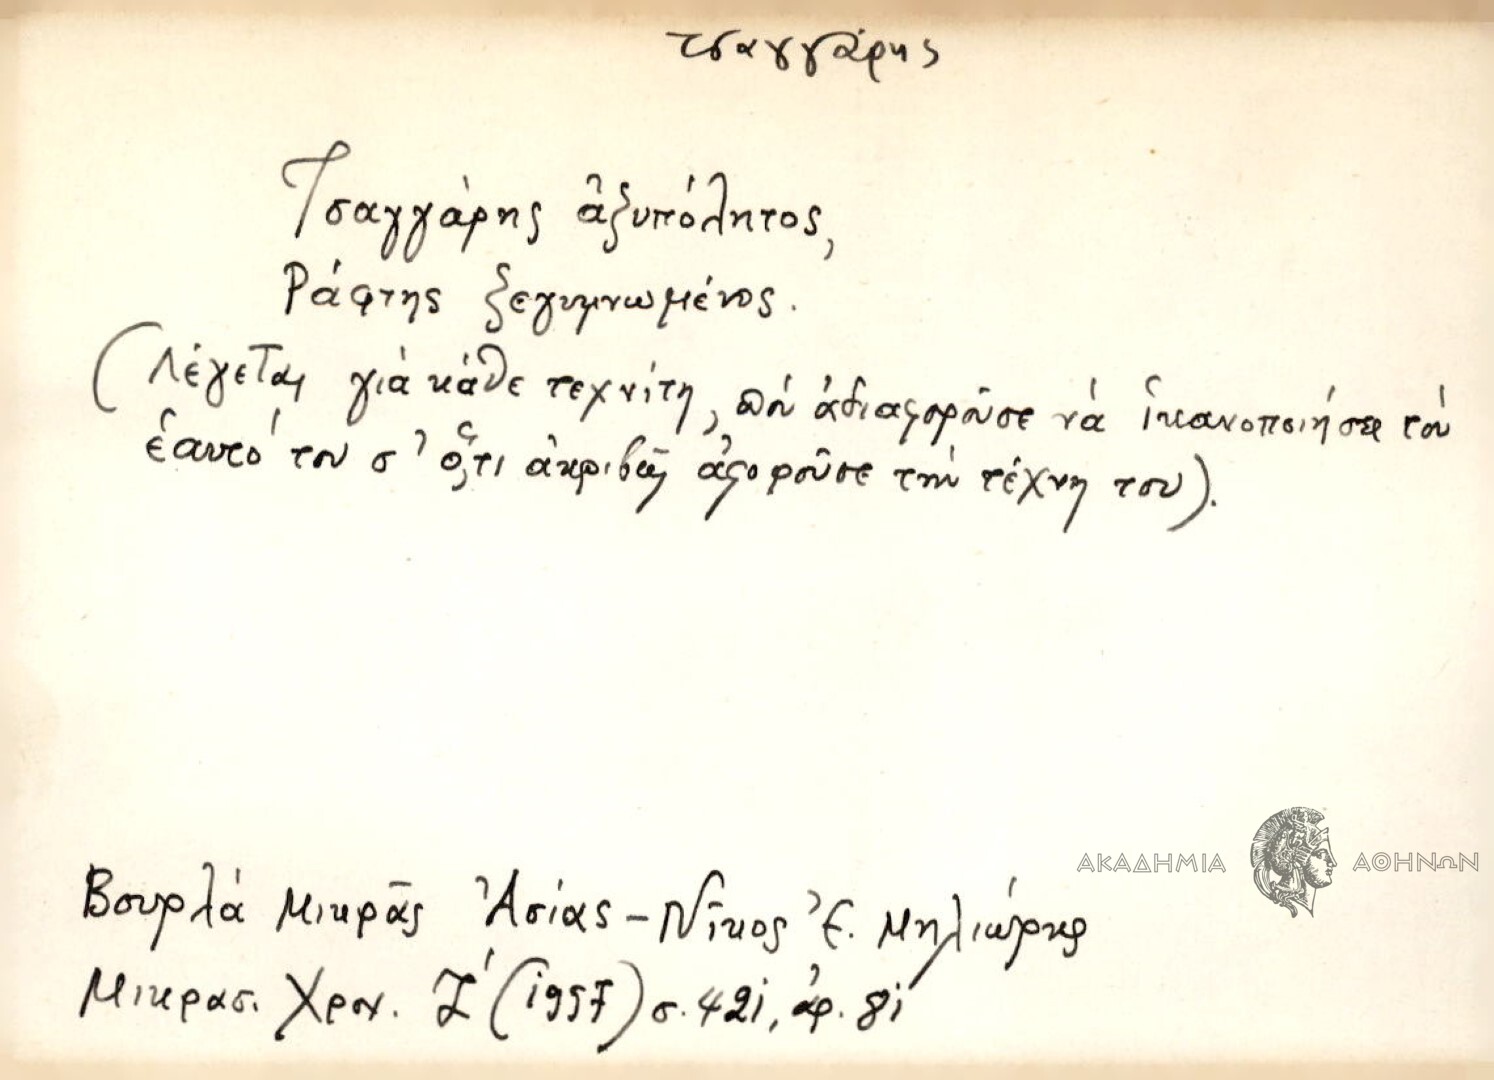 τσαγγάρης
Τσαγγάρης ἀξυπόλητος,
Ράφτης ξεγυμνωμένος.
(Λέγεται γιὰ κάθε τεχνίτη, ποὺ ἀδιαφοροῦσε νὰ ἱκανοποιήσῃ τὸν
ἑαυτό του σ' ὅ,τι ἀκριβῶς ἀφοροῦσε τὴν τέχνη του).
ΑΚΑΔΗΜΙΑ ΑΘΗΝΩΝ
Βουρλὰ Μικρᾶς Ἀσίας – Νῖκος Ἐ. Μηλιώρης
Μικρασ. Χρον. Ζ' (1957) σ. 421, ἀρ. 81